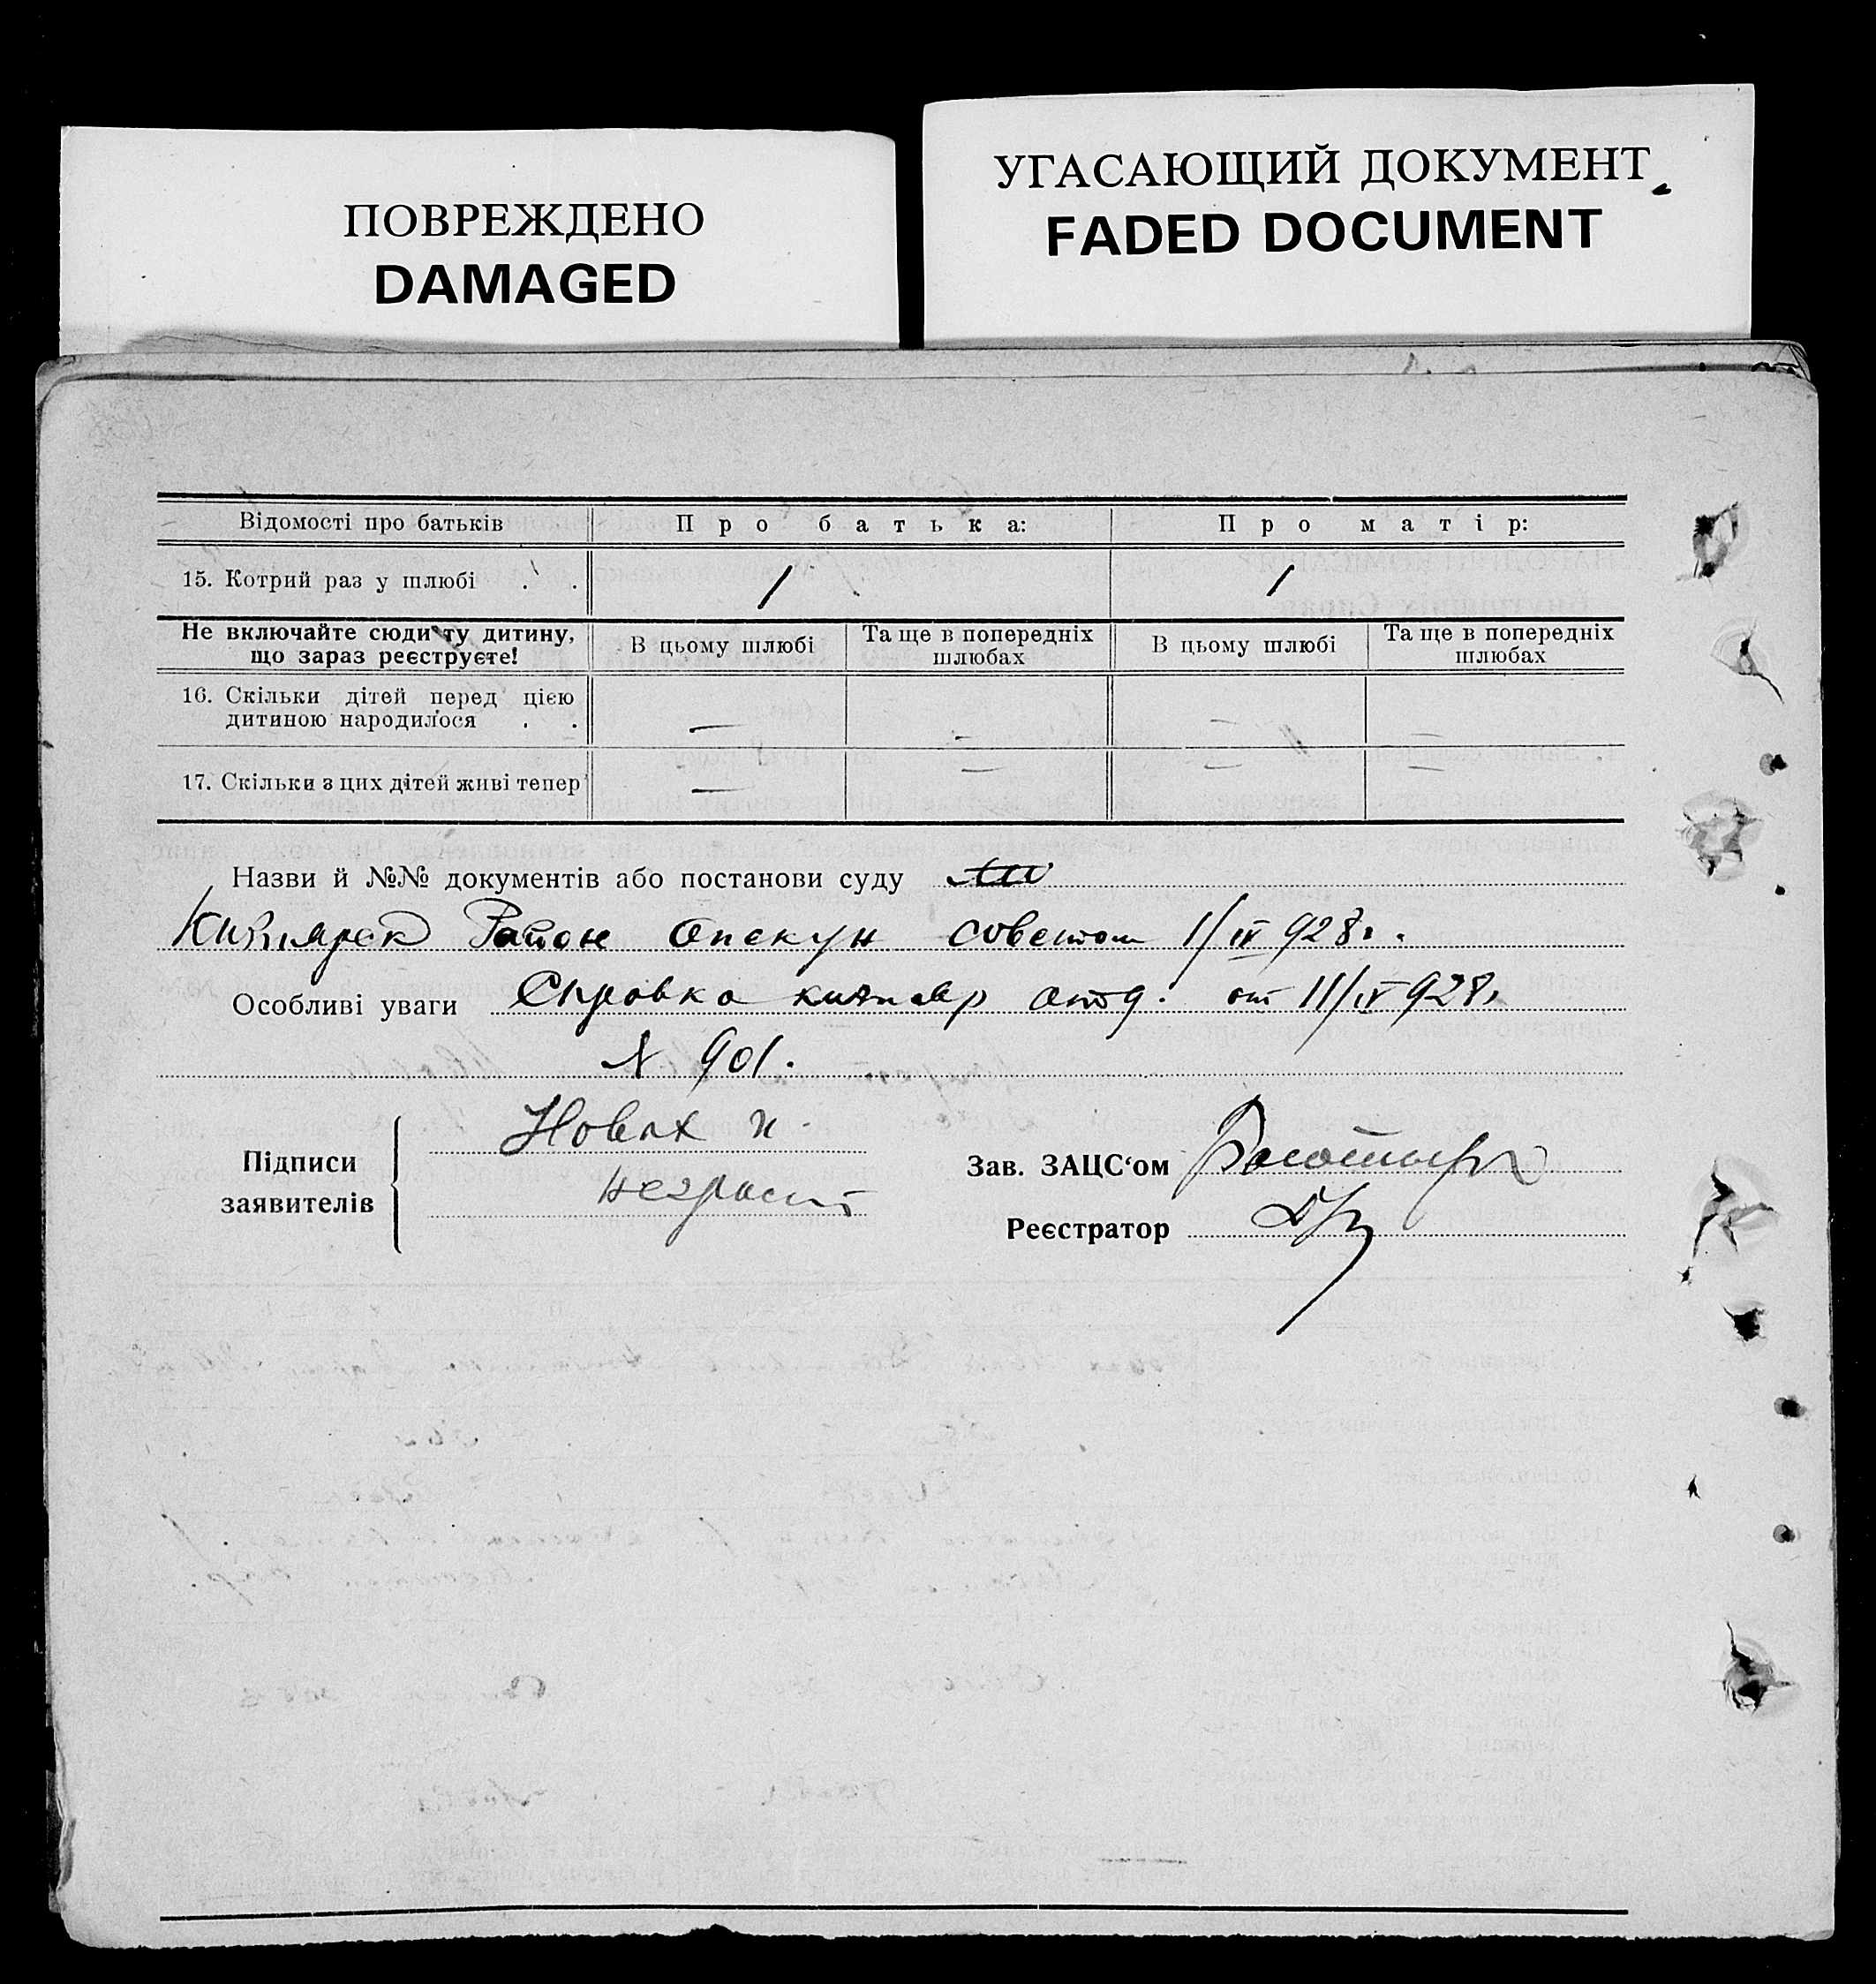 ПОВРЕЖДЕНО
DAMAGED
УГАСАЮЩИЙ ДОКУМЕНТ
FADED DOCUMENT
Відомості про батьків
Про батька:
Про матір:
15. Котрий раз у шлюбі . .
1
1
Не включайте сюди ту дитину,
що зараз реєструєте!
В цьому шлюбі
Та ще в попередніх
шлюбах
В цьому шлюбі
Та ще в попередніх
шлюбах
16. Скільки дітей перед цією
дитиною народилося . .
—
—
—
—
17. Скільки з цих дітей живі тепер
—
—
—
—
Назви й №№ документів або постанови суду
Район Опекун советом 1/IV 928.
Особливі уваги Справка отд. от 11/IV 928,
N 901.
Підписи
заявителів
Новак и.
неграмот
Зав. ЗАЦС‘ом
Реєстратор